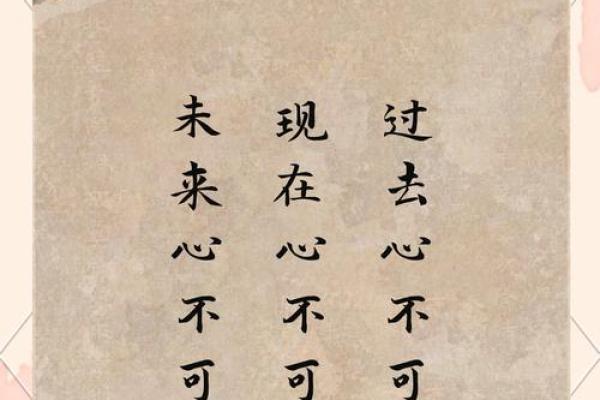 过去心不可
现在心不可
未来心不可